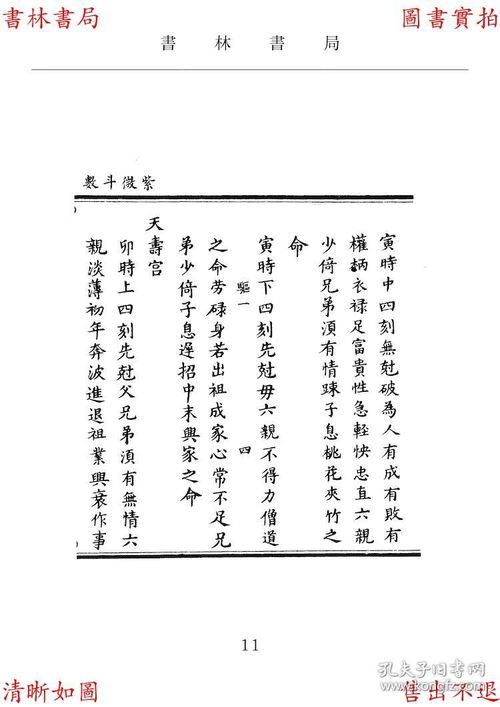 書林書局
圖書實拍
書林書局
紫微斗數
寅時中四刻無尅破為人有成有敗有
權柄衣禄足富貴性急輕快忠直六親
少倚兄弟須有情踈子息桃花夾竹之
命
寅時下四刻先尅毋六親不得力僧道
驅一 四
之命劳碌身若出祖成家心常不足兄
弟少倚子息遲招中末興家之命
天壽宮
卯時上四刻先尅父兄弟須有無情六
親淡薄初年奔波進退祖業興衰作事
11
孔夫子旧书网
www.kongfz.com
清晰如圖
售出不退